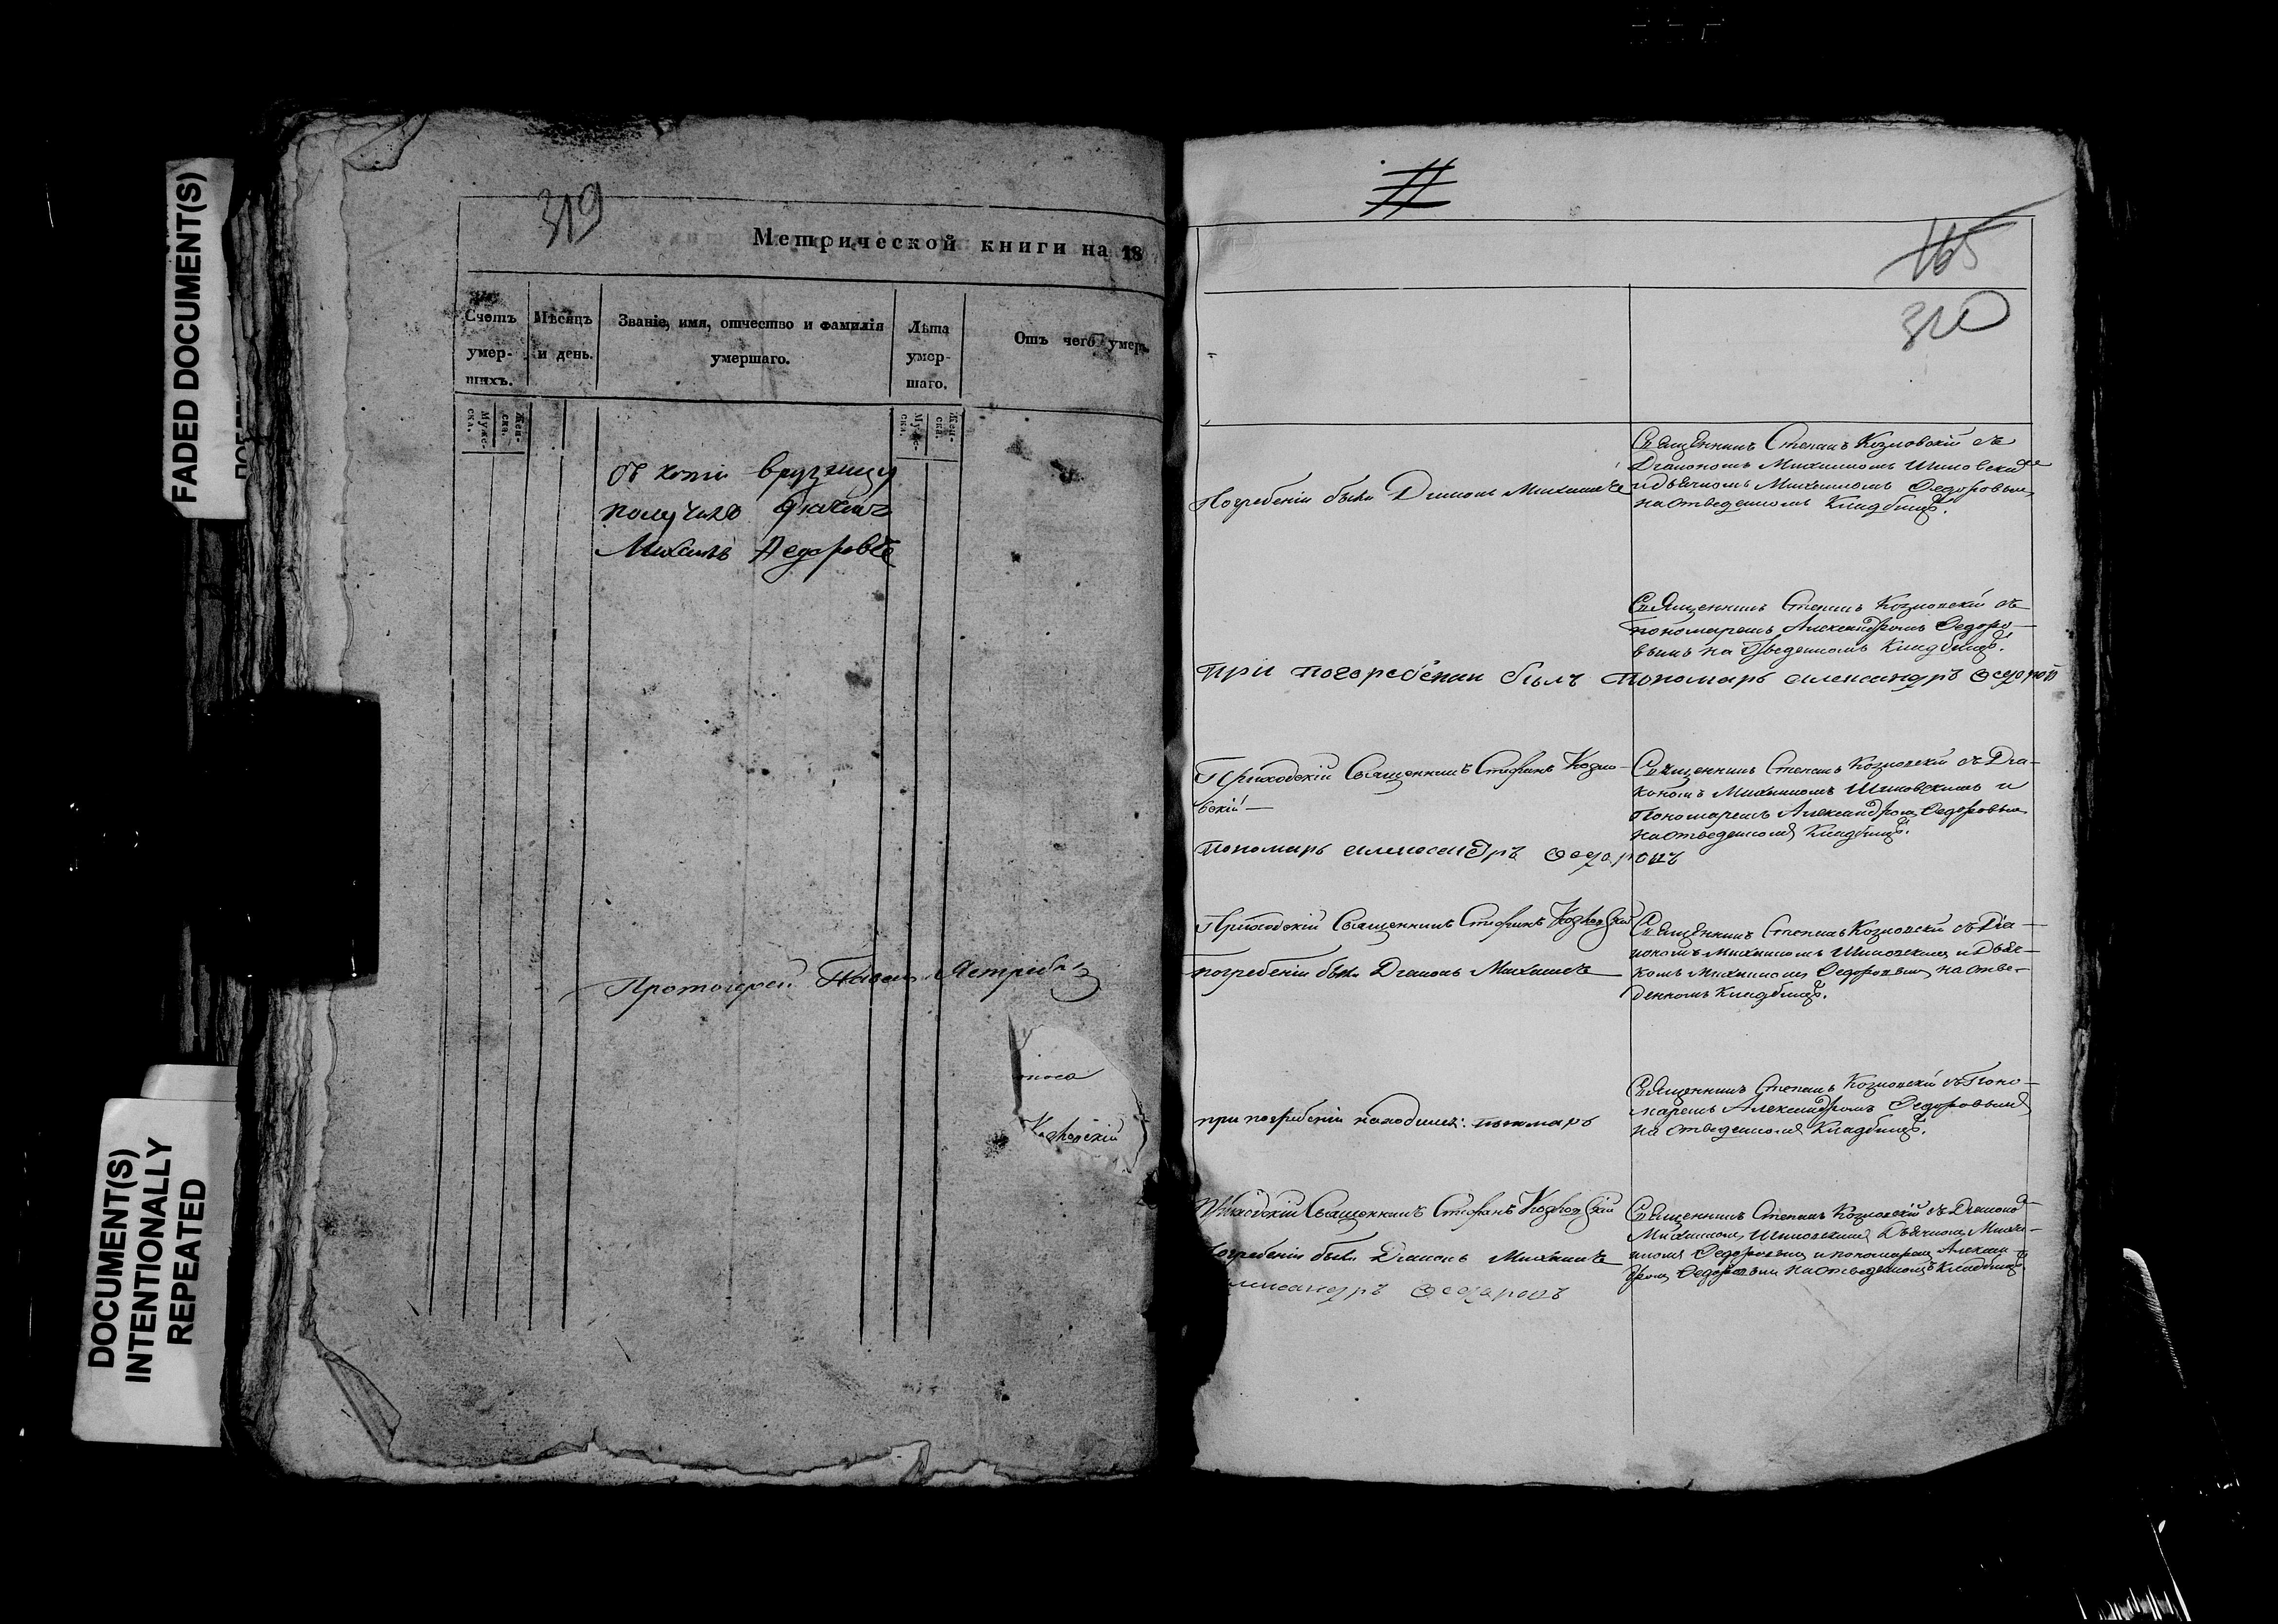 FADED DOCUMENT(S)
DOCUMENT(S)
INTENTIONALLY
REPEATED
319
Метрической книги на 18
Счетъ
умер-
шихъ.
Мѣсяцъ
и день.
Званіе, имя, отчество и фамилія
умершаго.
Лѣта
умер-
шаго.
Отъ чего умеръ.
Мужес-
ска.
Жен-
ска.
Муже-
ска.
Жен-
ска.
получилъ
Михаилъ Федоровъ
Протоіерей Павелъ
Козловскій
#
165
320
Погребеніи были Діаконъ Михаилъ
Священникъ Степанъ Козловскій съ
Діакономъ Михаиломъ Шиповскимъ
и дьячкомъ Михаиломъ Ѳедоровымъ
на отведенномъ Кладбищѣ.
Священникъ Степанъ Козловскій съ
пономаремъ Александромъ Ѳедоро-
вымъ на отведенномъ Кладбищѣ.
при погоребении былъ пономаръ александръ Ѳедоровъ
Приходскій Священникъ Стефанъ Козло-
вскій
пономаръ александръ Ѳедоровъ
Священникъ Степанъ Козловскій съ Діа-
кономъ Михаиломъ Шиповскимъ и
Пономаремъ Александромъ Ѳедоровымъ
на отведенномъ Кладбищѣ.
Приходскій Священникъ Стефанъ Козловскій
погребеніи были Діаконъ Михаилъ
Священникъ Степанъ Козловскій съ Діа-
кономъ Михаиломъ Шиповскимъ и Дьяч-
комъ Михаиломъ Ѳедоровымъ на отве-
денномъ Кладбищѣ.
при погребеніи находился: пономаръ
Священникъ Степанъ Козловскій съ Поно-
маремъ Александромъ Ѳедоровымъ
на отведенномъ Кладбищѣ.
Священникъ Стефанъ Козловскій
погребеніи были Діаконъ Михаилъ
александръ Ѳедоровъ
Священникъ Степанъ Козловскій съ Діакономъ
Михаиломъ Шиповскимъ Дьячкомъ Миха-
иломъ Ѳедоровымъ и пономаремъ Алексан-
дромъ Ѳедоровымъ на отведенномъ Кладбищѣ.